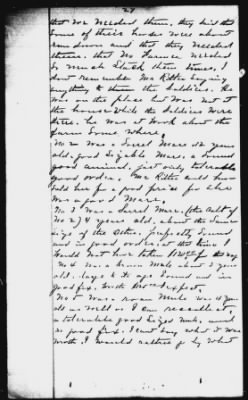 27
that we needed them, they said that
some of their horses were about
run down and that they needed
theirs. that Mr Farmer needed
so much Stock them times, I
dont remember Mr Ritter saying
anything to them the Soldiers. He
was on the place but was not at
the house while the Soldiers were
there. he was at Work about the
farm Some where.
No 2 was a Sorrel Mare 12 years
old. good Sizable Mare, a sound
good animal, just only tolerable
good order. Mr Ritter could have
Sold her for a good price for she
was a good Mare.
No 3 was a Sorrel Mare, (the Colt of
No 2) 4 years old, about the same
size of the other, perfectly Sound
and in good order, at that time I
Would not have taken for her
No 4 was a brown Mule about 3 year
old. Sound and in
good fix. worth
No 5 was a roan Mule was 4 years
old as well as I can recollect
a tolerable good Sized Mule, and
in good fix. I cant say what it was
worth, I would rather go by What